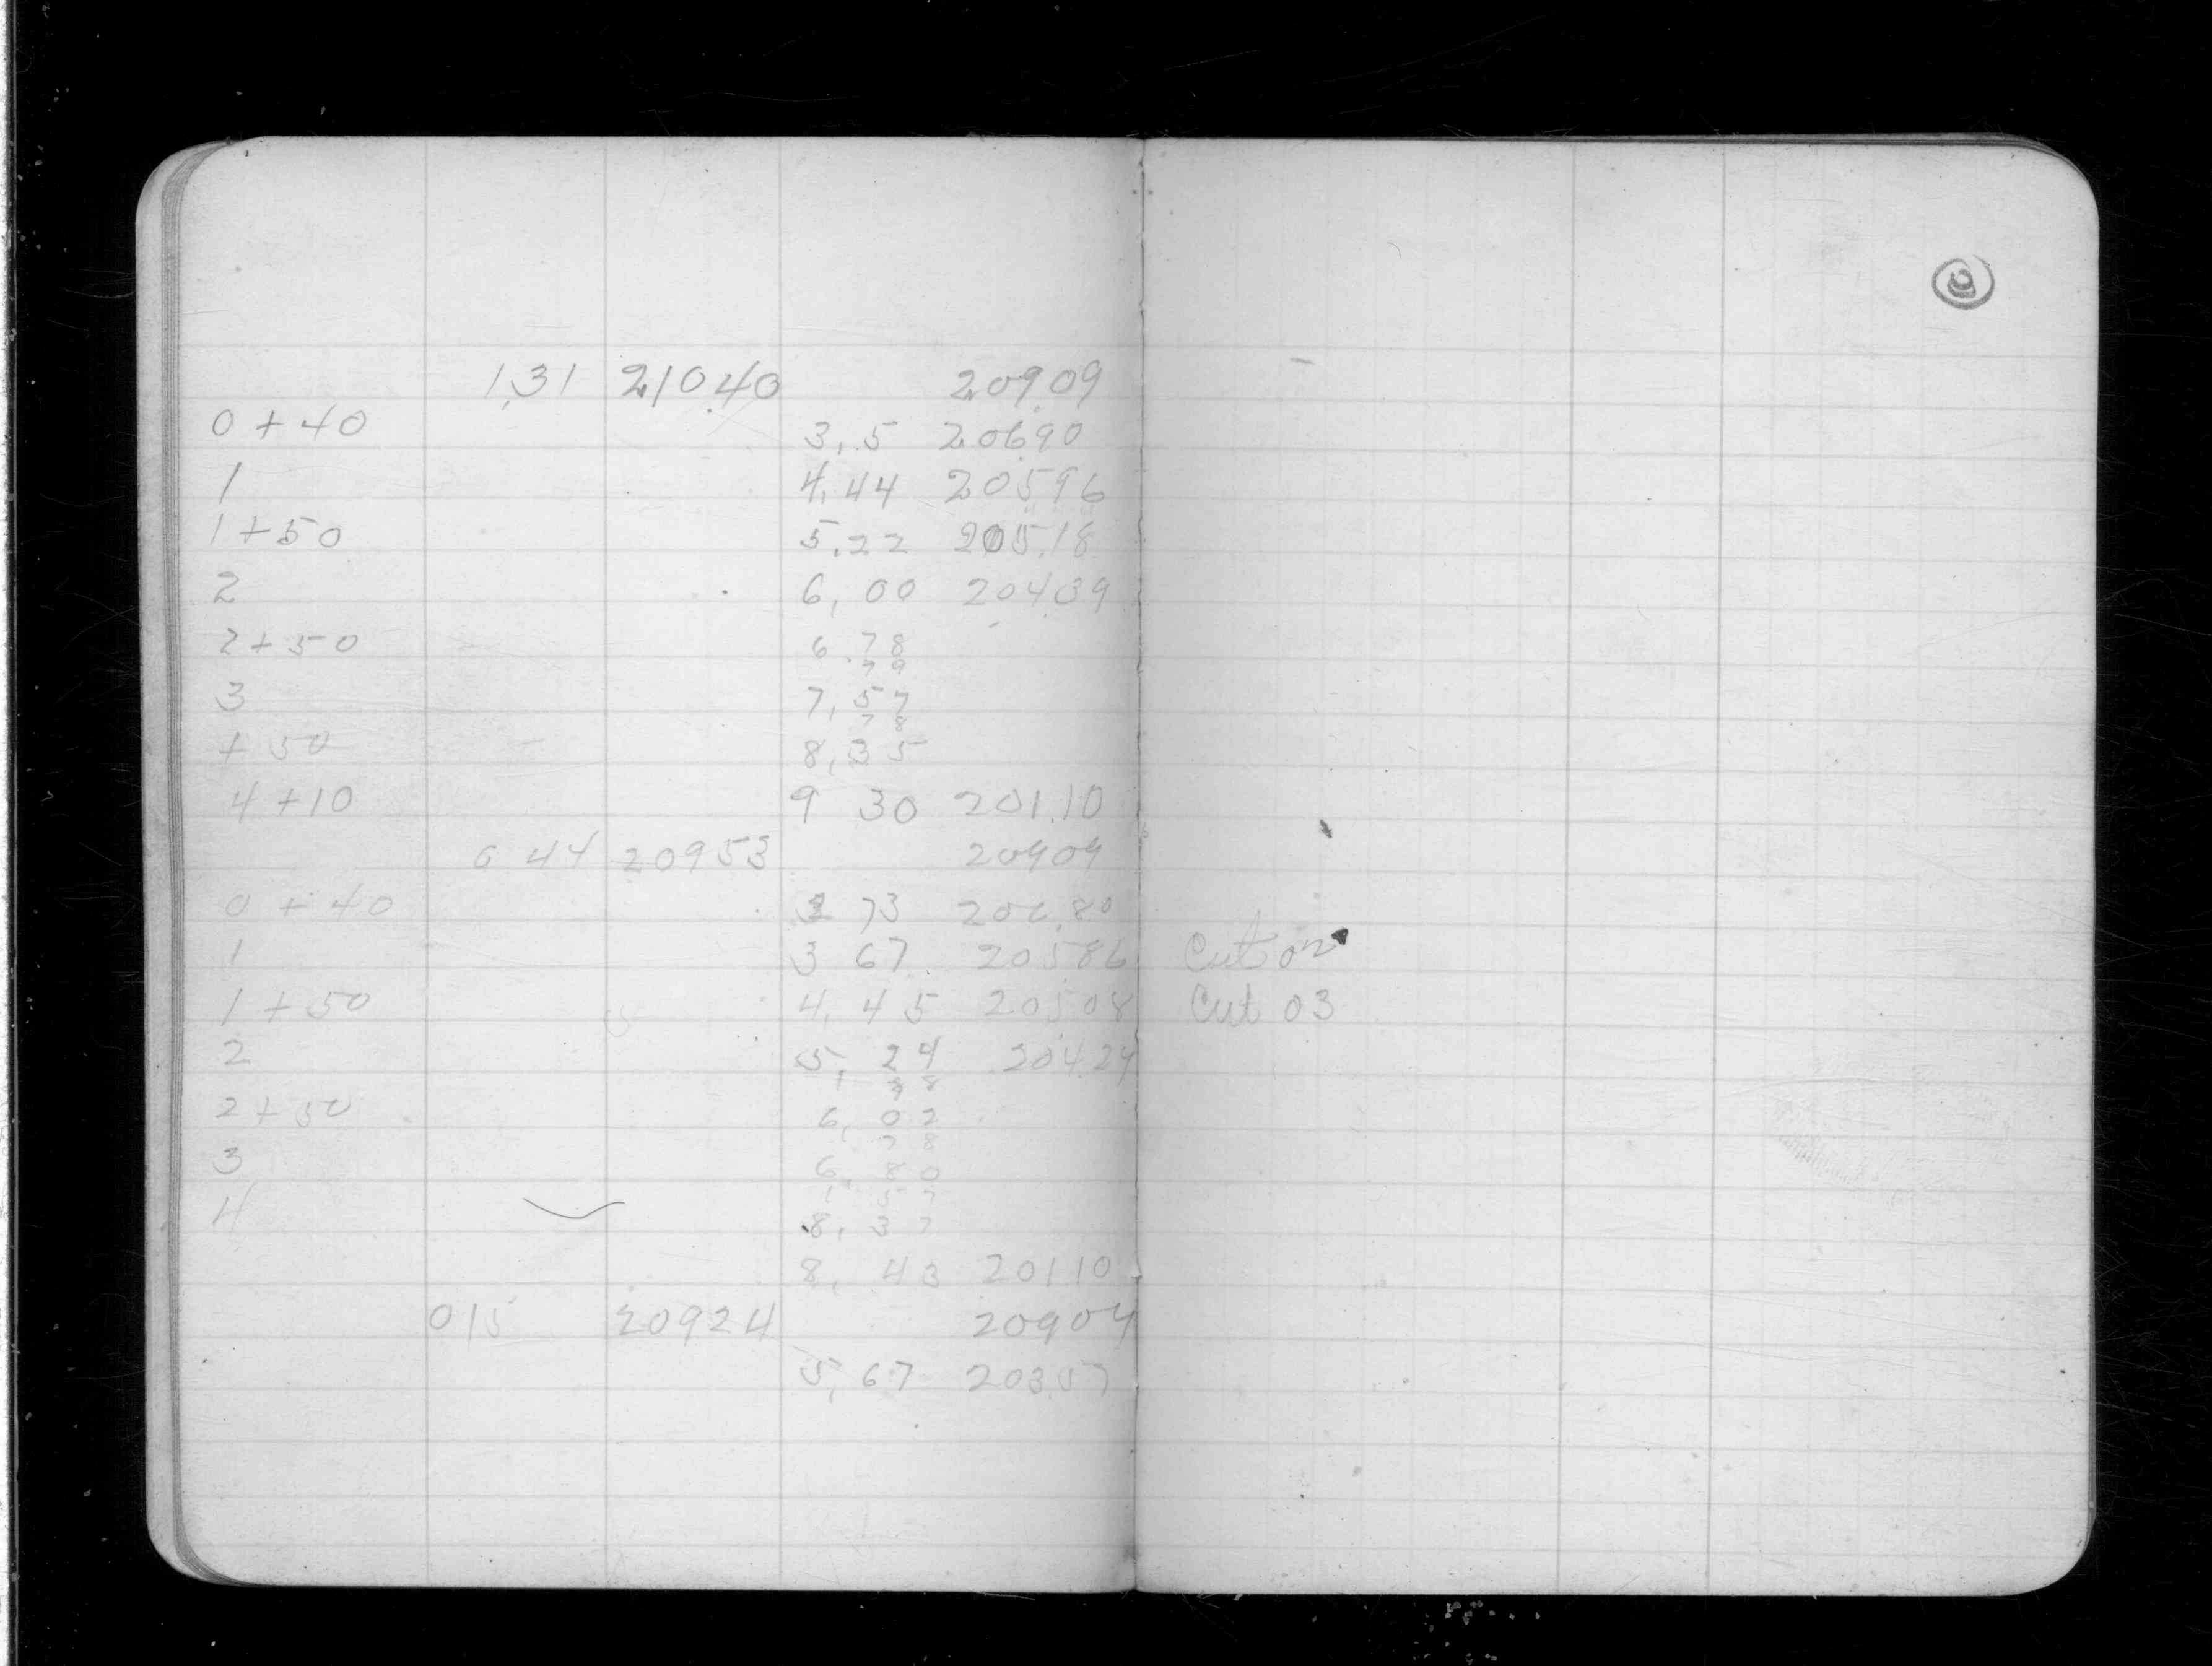 1.31 210.40 209.09
0 + 40 3.5 206.90
1 4.44 205.96
1 + 50 5.22 205.18
2 6.00 204.39
2 + 50 6.78
79
3 7.57
78
+ 50 8.35
4 + 10 9 30 201.10
0 44 20953 20909
0 + 40 73 206.80
1 3 67 205.86 Cut 02
1 + 50 4.45 205.08 Cut 03
2 5.24 204.29
78
2 + 50 6.02
78
3 6.80
1 57
4 8.37
8.43 20110
015 20924 20909
5.67 203.57